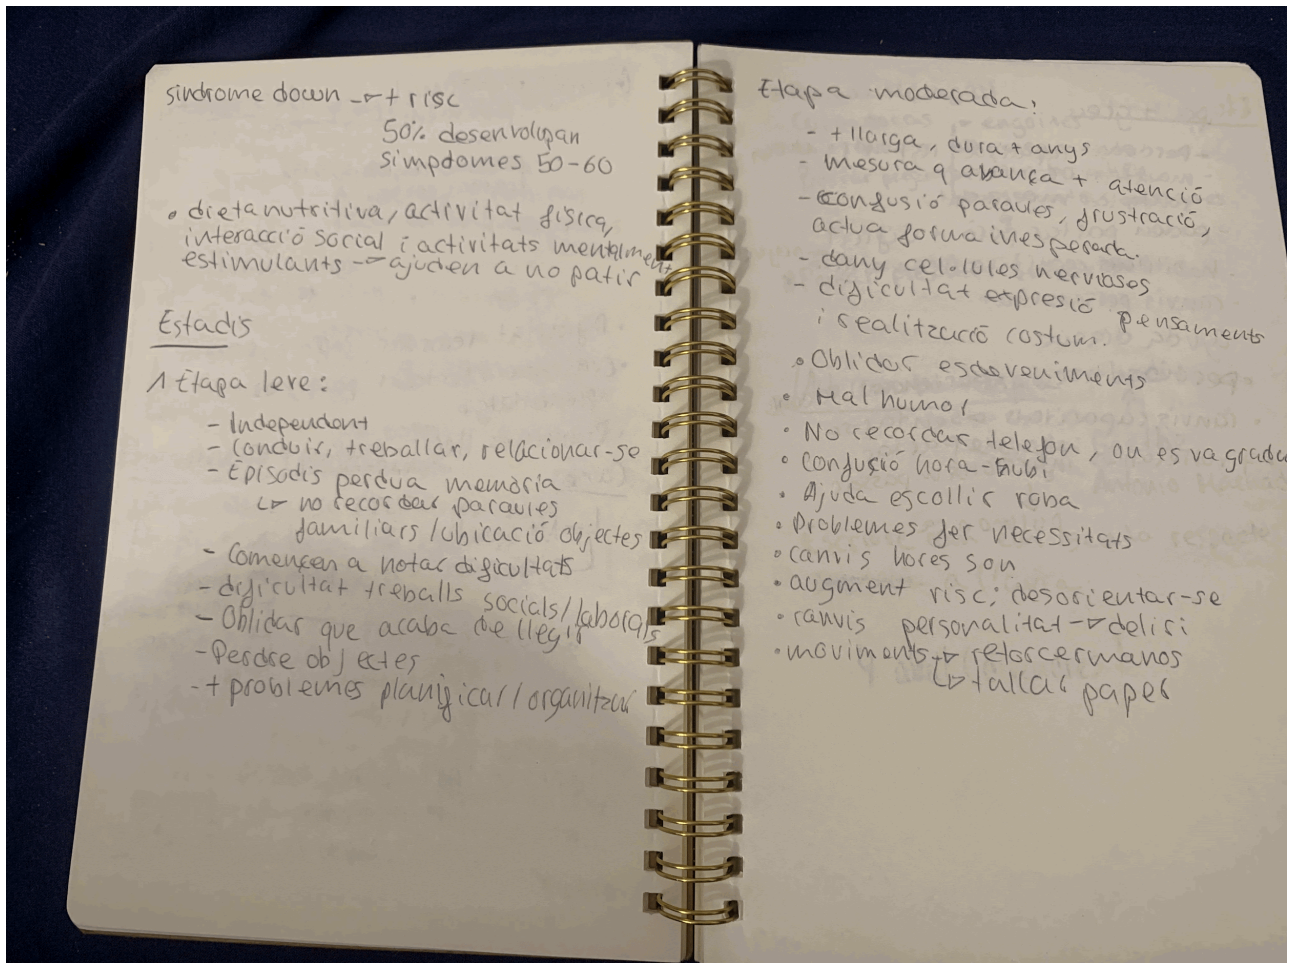 sindrome down → + risc
50% desenvolupan
simptomes 50-60
• dieta nutritiva, activitat física,
interacció social i activitats mentalment
estimulants → ajuden a no patir
Estadis
1 Etapa leve:
- Independent
- Conduir, treballar, relacionar-se
- Episodis perdua memoria
↳ no recordar paraules
familiars / ubicació objectes
- Comencen a notar dificultats
- dificultat treballs socials/laborals
- Oblidar que acaba de llegir
- Perdre objectes
- + problemes planificar / organitzar
Etapa moderada:
- + llarga, dura + anys
- mesura q avança + atenció
- confusió paraules, frustració,
actua forma inesperada.
- dany cel·lules nervioses
- dificultat expresió pensaments
i realització costum.
• Oblidar esdeveniments
• Mal humor
• No recordar telefon, on es va gradu
• Confusió hora-
• Ajuda escollir roba
• Problemes fer necessitats
• canvis hores son
• augment risc: desorientar-se
• canvis personalitat → deliri
• moviments → retorcer manos
↳ tallar paper